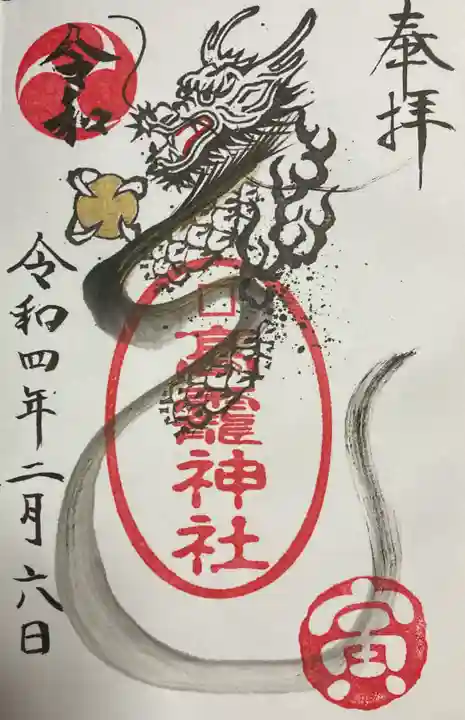 奉拝
高龗神社
寅
令和
令和四年二月六日